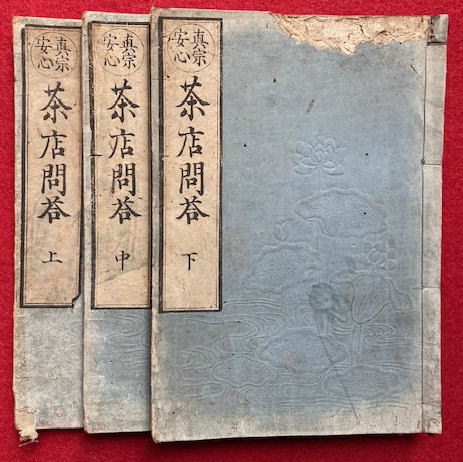 真宗
安心
茶店問荅
上
真宗
安心
茶店問荅
中
真宗
安心
茶店問荅
下